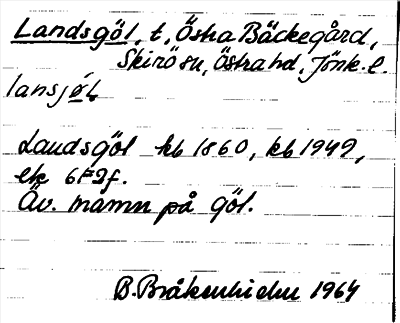 Landsgöl, t, Östra Bäckegård,
Skirö sn, Östra hd, Jönk. l.
lansjö̀l,
Landsgöl kb 1860, kb 1949,
ek 6F9f.
Äv. namn på göl.
B. Bråkenhielm 1964